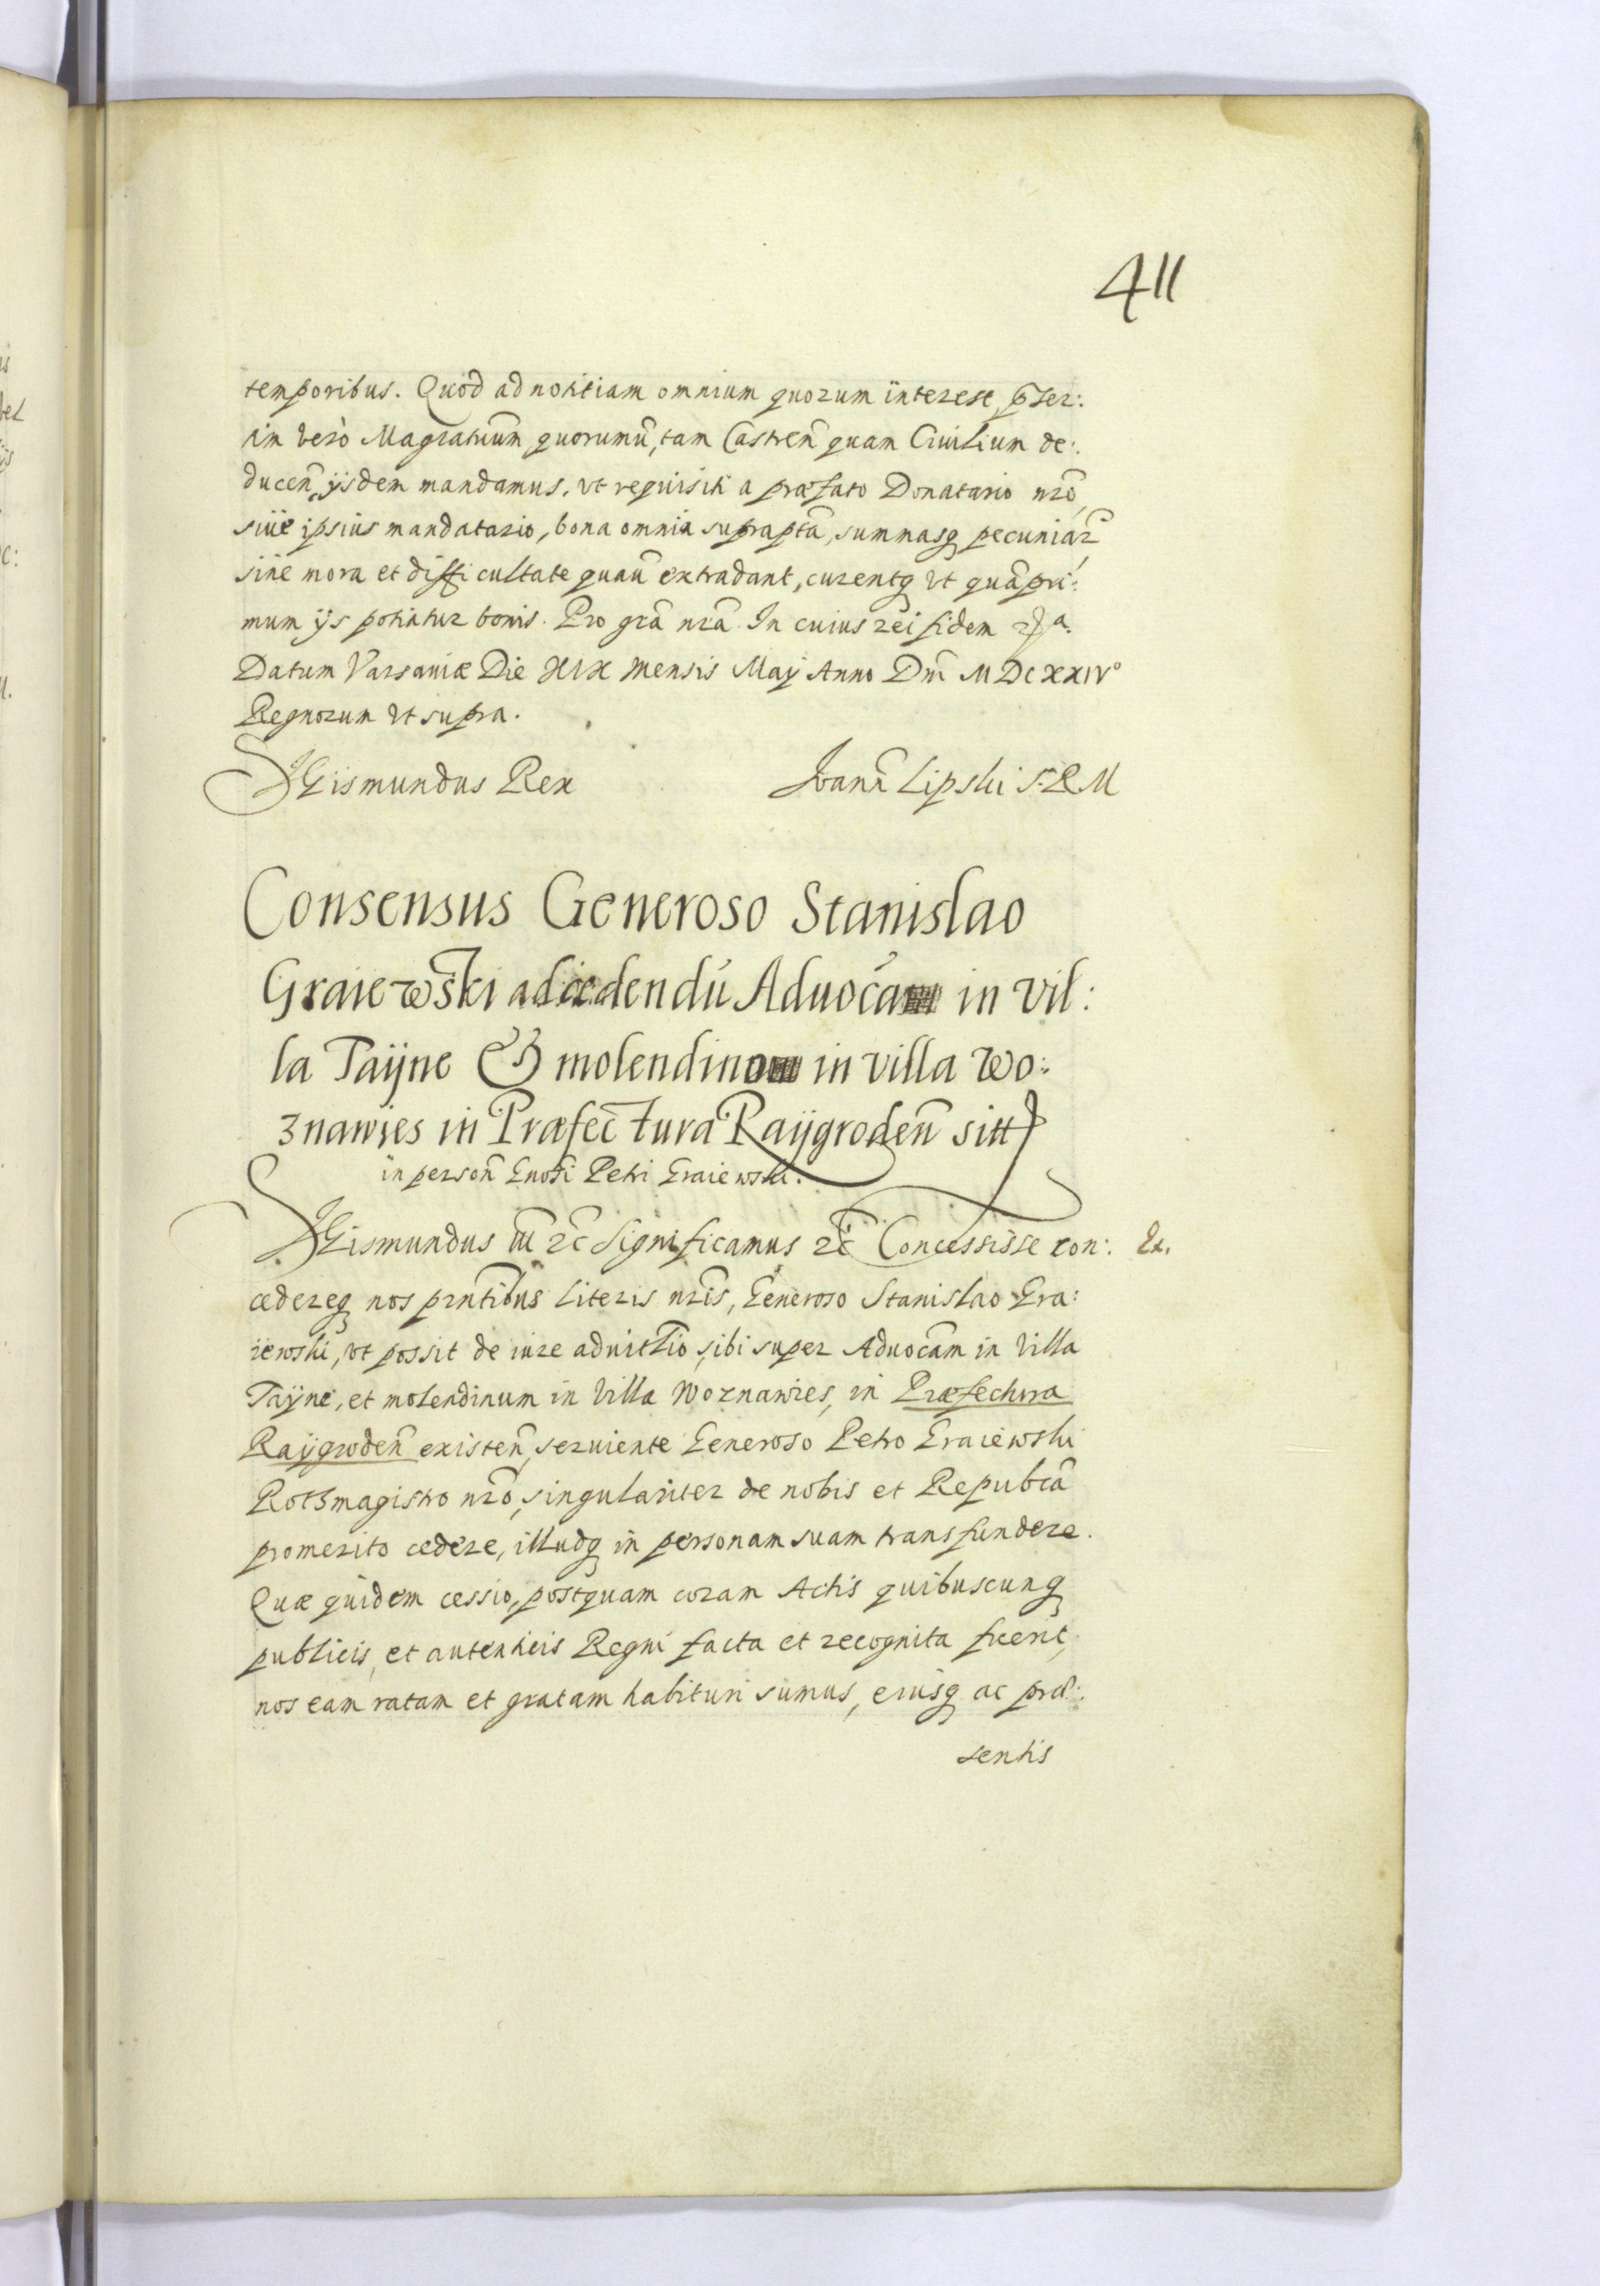 411
temporibus. Quod ad notitiam omnium quorum interest, p̃ser:
im verò Magratuum̃ quorumũ, tam Castreñ quam Ciuilium de:
duceñ, ijsdem mandamus, vt requisiti a præfato Donatario nr̃o,
siue ipsius mandatario, bona omnia supraptã, summasq pecuniar̃
sine mora et difficultate quaũ extradant, curentq vt quãpri:
mum ijs potiatur bonis. Pro grã nrã. In cuius rei fidem
Datum Varsauiæ Die XIX mensis Maij Anno Dm̃ MDCXXIVº
Regnorum vt supra.
Sigismundus Rex Ioanñ Lipski S. R M
Consensus Generoso Stanislao
Graiewski ad cedendũ Aduocã in vil:
la Taÿne & molendino in villa Wo:
znawies in Præfectura Raÿgrodeñ sitt
in persoñ Gnosi Petri Graiewski.
Sigismundus III rc̃ Significamus rc̃ Concessisse con: Ex.
cedereq nos prñtibus literis nrĩs, Generoso Stanislao Gra:
iewski, vt possit de iure aduitlio, sibi super Aduocãm in Villa
Taÿne, et molendinum in Villa Woznawies, in Præfectura
Raÿgrodeñ existeñ, seruiente Generoso Petro Graiewski
Rothmagistro nr̃o, singulariter de nobis et Republcã
promerito cedere, illudq in personam suam transfundere.
Quæ quidem cessio, postquam coram Actis quibuscunq
publicis, et autenticis Regni facta et recognita fuerit,
nos eam ratam et gratam habituri sumus, eiusq ac præ:
sentis